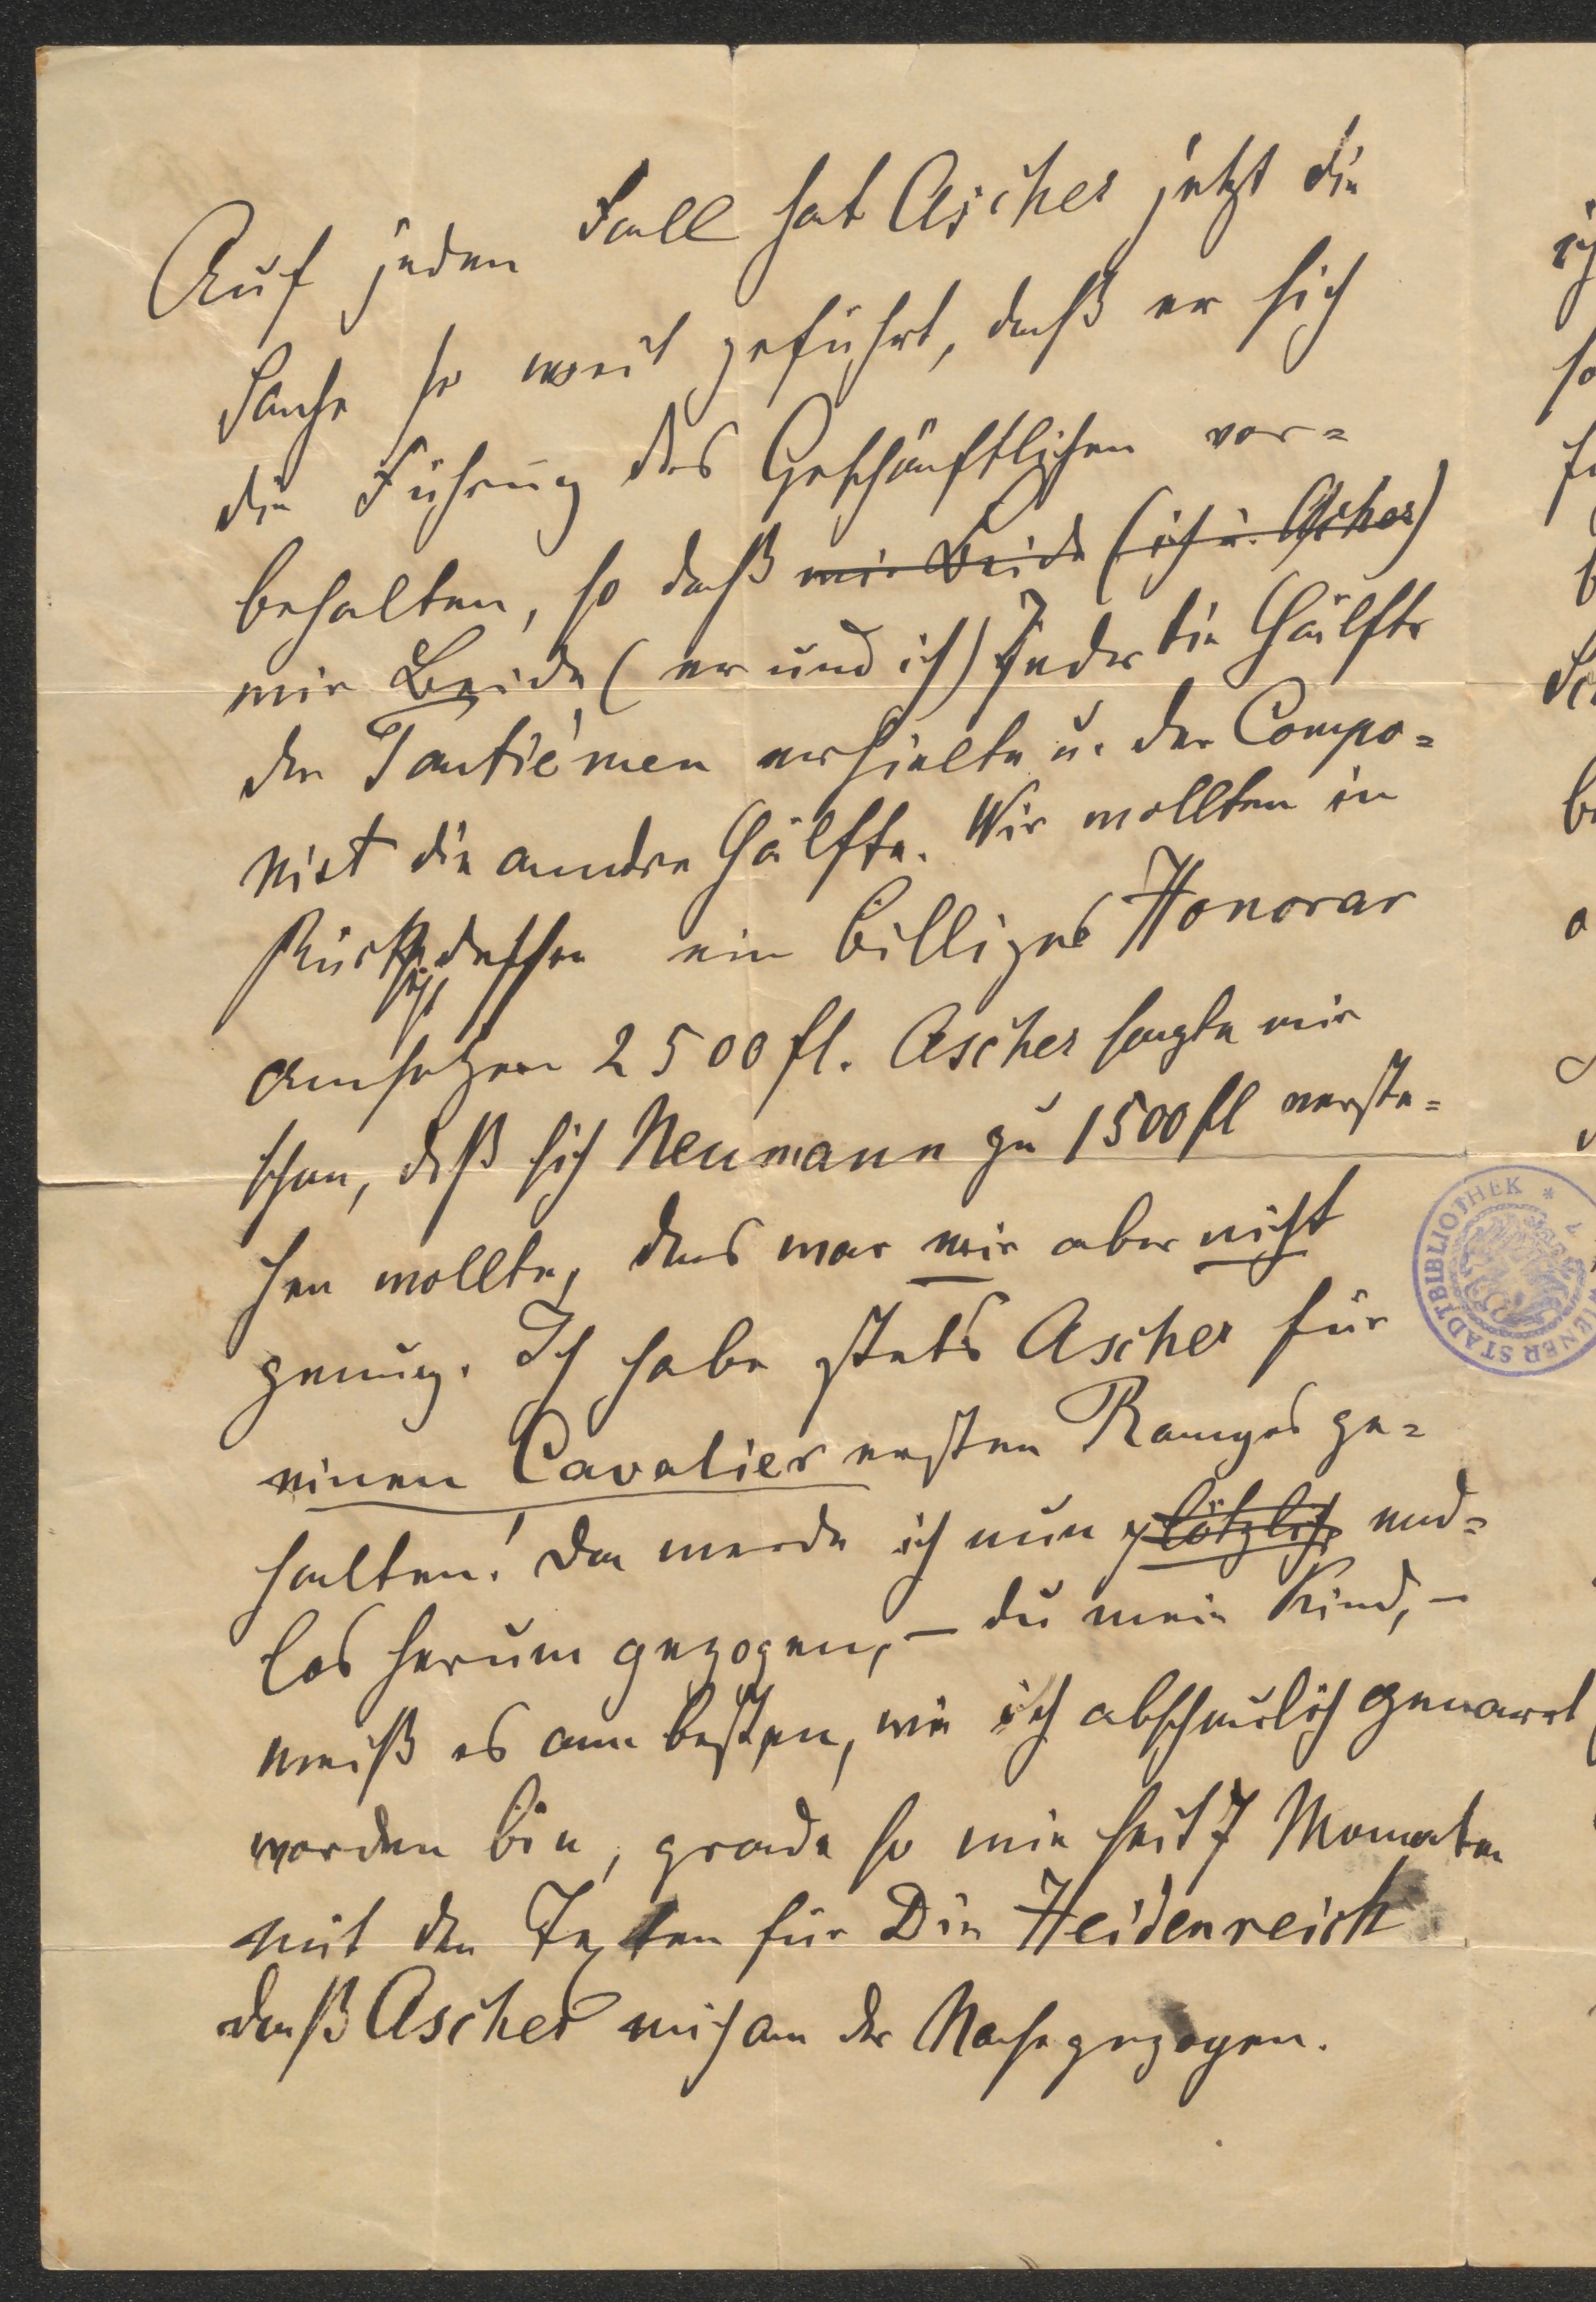 Auf jeden Fall hat Ascher jetzt die
Sache so weit geführt, daß er sich
die Führung des Geschäftlichen vor=
behalten, so daß wir Beide (ich u. Ascher)
wir Beide (er und ich) Jeder die Hälfte
der Tantiémen erhielte u. der Compo=
nist die andre Hälfte. Wir wollten in
Rücksicht dessen ein billiges Honorar
ansetzen 2500 fl. Ascher sagte mir
schon, daß sich Neumann zu 1500 fl verste=
hen wollte, das war mir aber nicht
genug. Ich habe stets Ascher für
einen Cavalier ersten Ranges ge=
halten! Da werde ich nun plötzlich end=
los herum gezogen, – du mein Kind, –
weiß es am besten, wie ich abscheulich genarrt
worden bin, grade so wie seit 7 Monaten
mit den Texten für Die Heidenreich
daß Ascher mich an der Nase gezogen.
WIENER STADTBIBLIOTHEK *